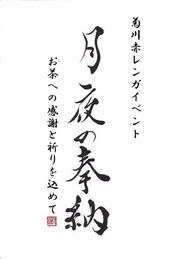 菊川赤レンガイベント
月夜の奉納
お茶への感謝と祈りを込めて